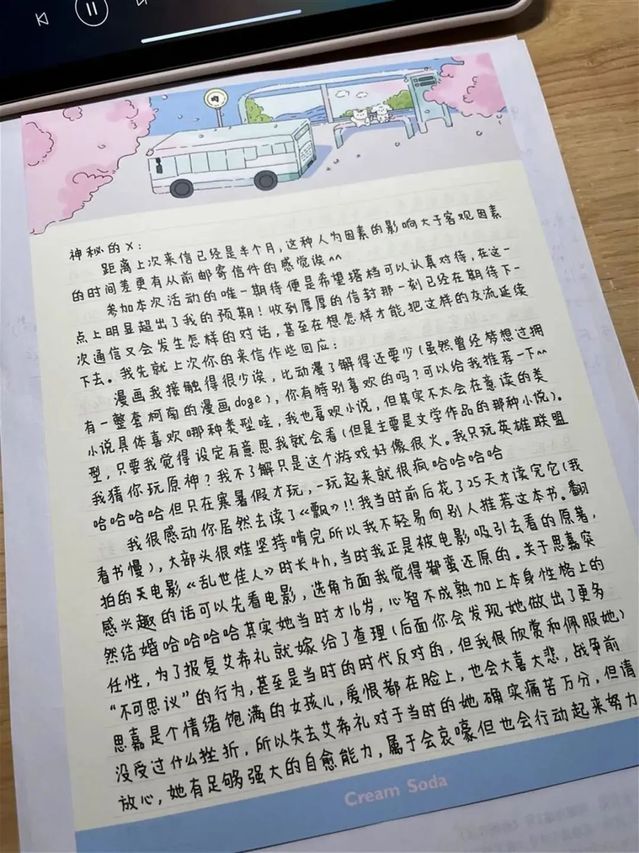 神秘的X：
距离上次来信已经是半个月，这种人为因素的影响大于客观因素
的时间差更有从前邮寄信件的感觉诶^^
参加本次活动的唯一期待便是希望搭档可以认真对待，在这一
点上明显超出了我的预期！收到厚厚的信封那一刻已经在期待下一
次通信又会发生怎样的对话，甚至在想怎样才能把这样的交流延续
下去。我先就上次你的来信作些回应：
漫画我接触得很少诶，比动漫了解得还要少（虽然曾经梦想过拥
有一整套柯南的漫画doge），你有特别喜欢的吗？可以给我推荐一下^^
小说具体喜欢哪种类型哇，我也喜欢小说，但其实不太会在意读的类
型，只要我觉得设定有意思我就会看（但是主要是文学作品的那种小说）。
我猜你玩原神？我不了解只是这个游戏好像很火。我只玩英雄联盟
哈哈哈哈但只在寒暑假才玩，一玩起来就很疯哈哈哈哈
我很感动你居然去读了《飘》！！我当时前后花了25天才读完它（我
看书慢），大部头很难坚持啃完所以我不轻易向别人推荐这本书。翻
拍的美电影《乱世佳人》时长4h，当时我正是被电影吸引去看的原著，
感兴趣的话可以先看电影，选角方面我觉得都蛮还原的。关于思嘉突
然结婚哈哈哈哈其实她当时才16岁，心智不成熟加上本身性格上的
任性，为了报复艾希礼就嫁给了查理（后面你会发现她做出了更多
“不可思议”的行为，甚至是当时的时代反对的，但我很欣赏和佩服她）
思嘉是个情绪饱满的女孩儿，爱恨都在脸上，也会大喜大悲，战争前
没受过什么挫折，所以失去艾希礼对于当时的她确实痛苦万分，但请
放心，她有足够强大的自愈能力，属于会哀嚎但也会行动起来努力
Cream Soda